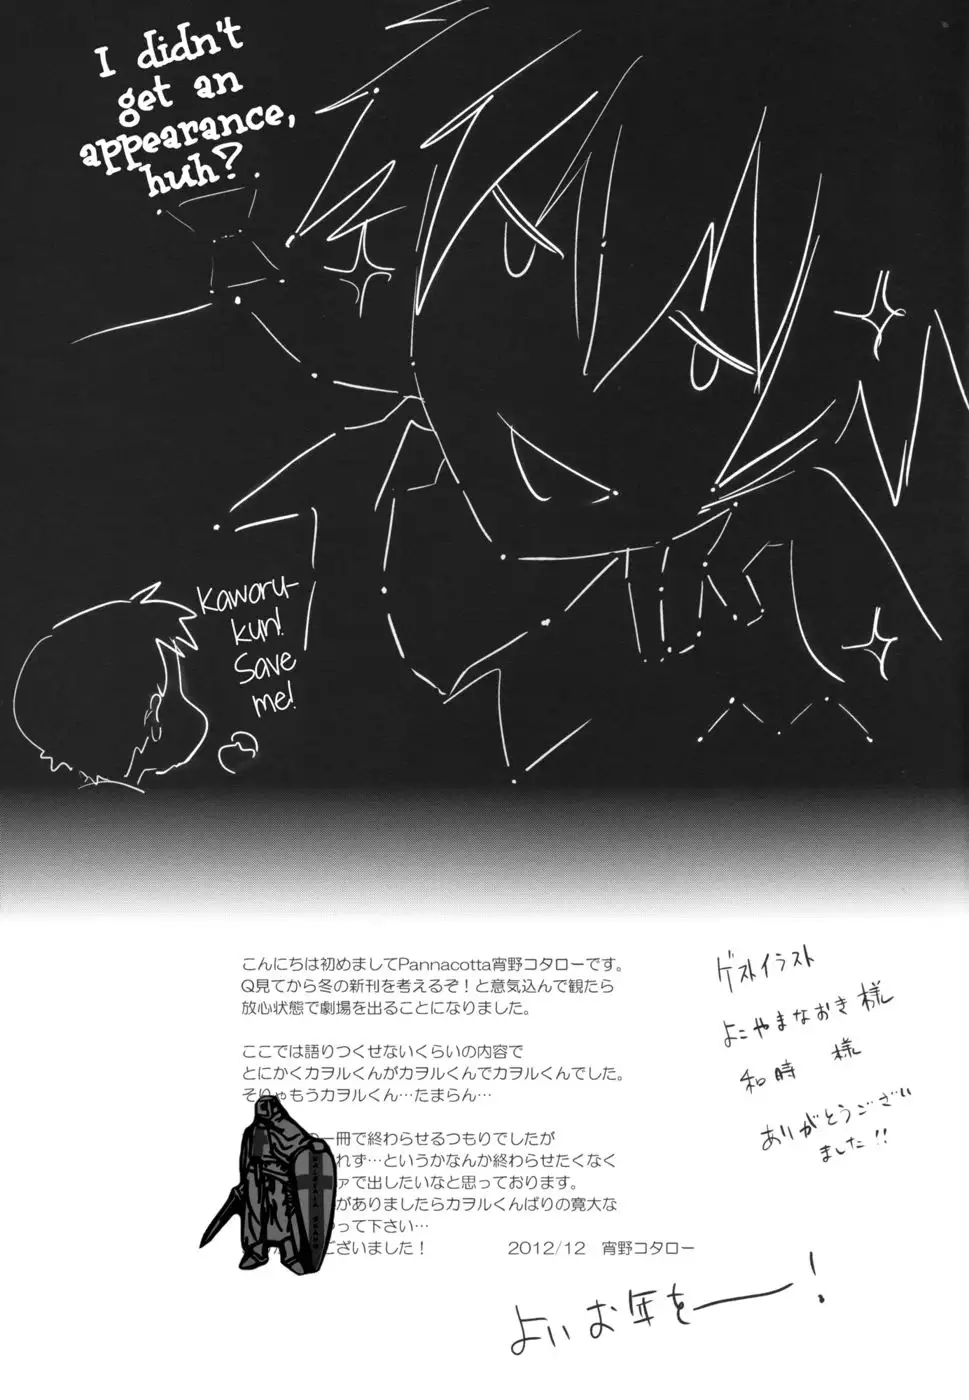 I didn't
get an
appearance,
huh?
Kaworu-
kun!
Save
me!
こんにちは初めましてPannacotta宵野コタローです。
Q見てから冬の新刊を考えるぞ！と意気込んで観たら
放心状態で劇場を出ることになりました。
ここでは語りつくせないくらいの内容で
とにかくカヲルくんがカヲルくんでカヲルくんでした。
そりゅもうカヲルくん…たまらん…
一冊で終わらせるつもりでしたが
れず…というかなんか終わらせたくなく
ァで出したいなと思っております。
がありましたらカヲルくんばりの寛大な
って下さい…
ございました！
2012/12 宵野コタロー
ゲストイラスト
よこやまなおき様
和時 様
ありがとうござい
ました!!
よいお年をーー！